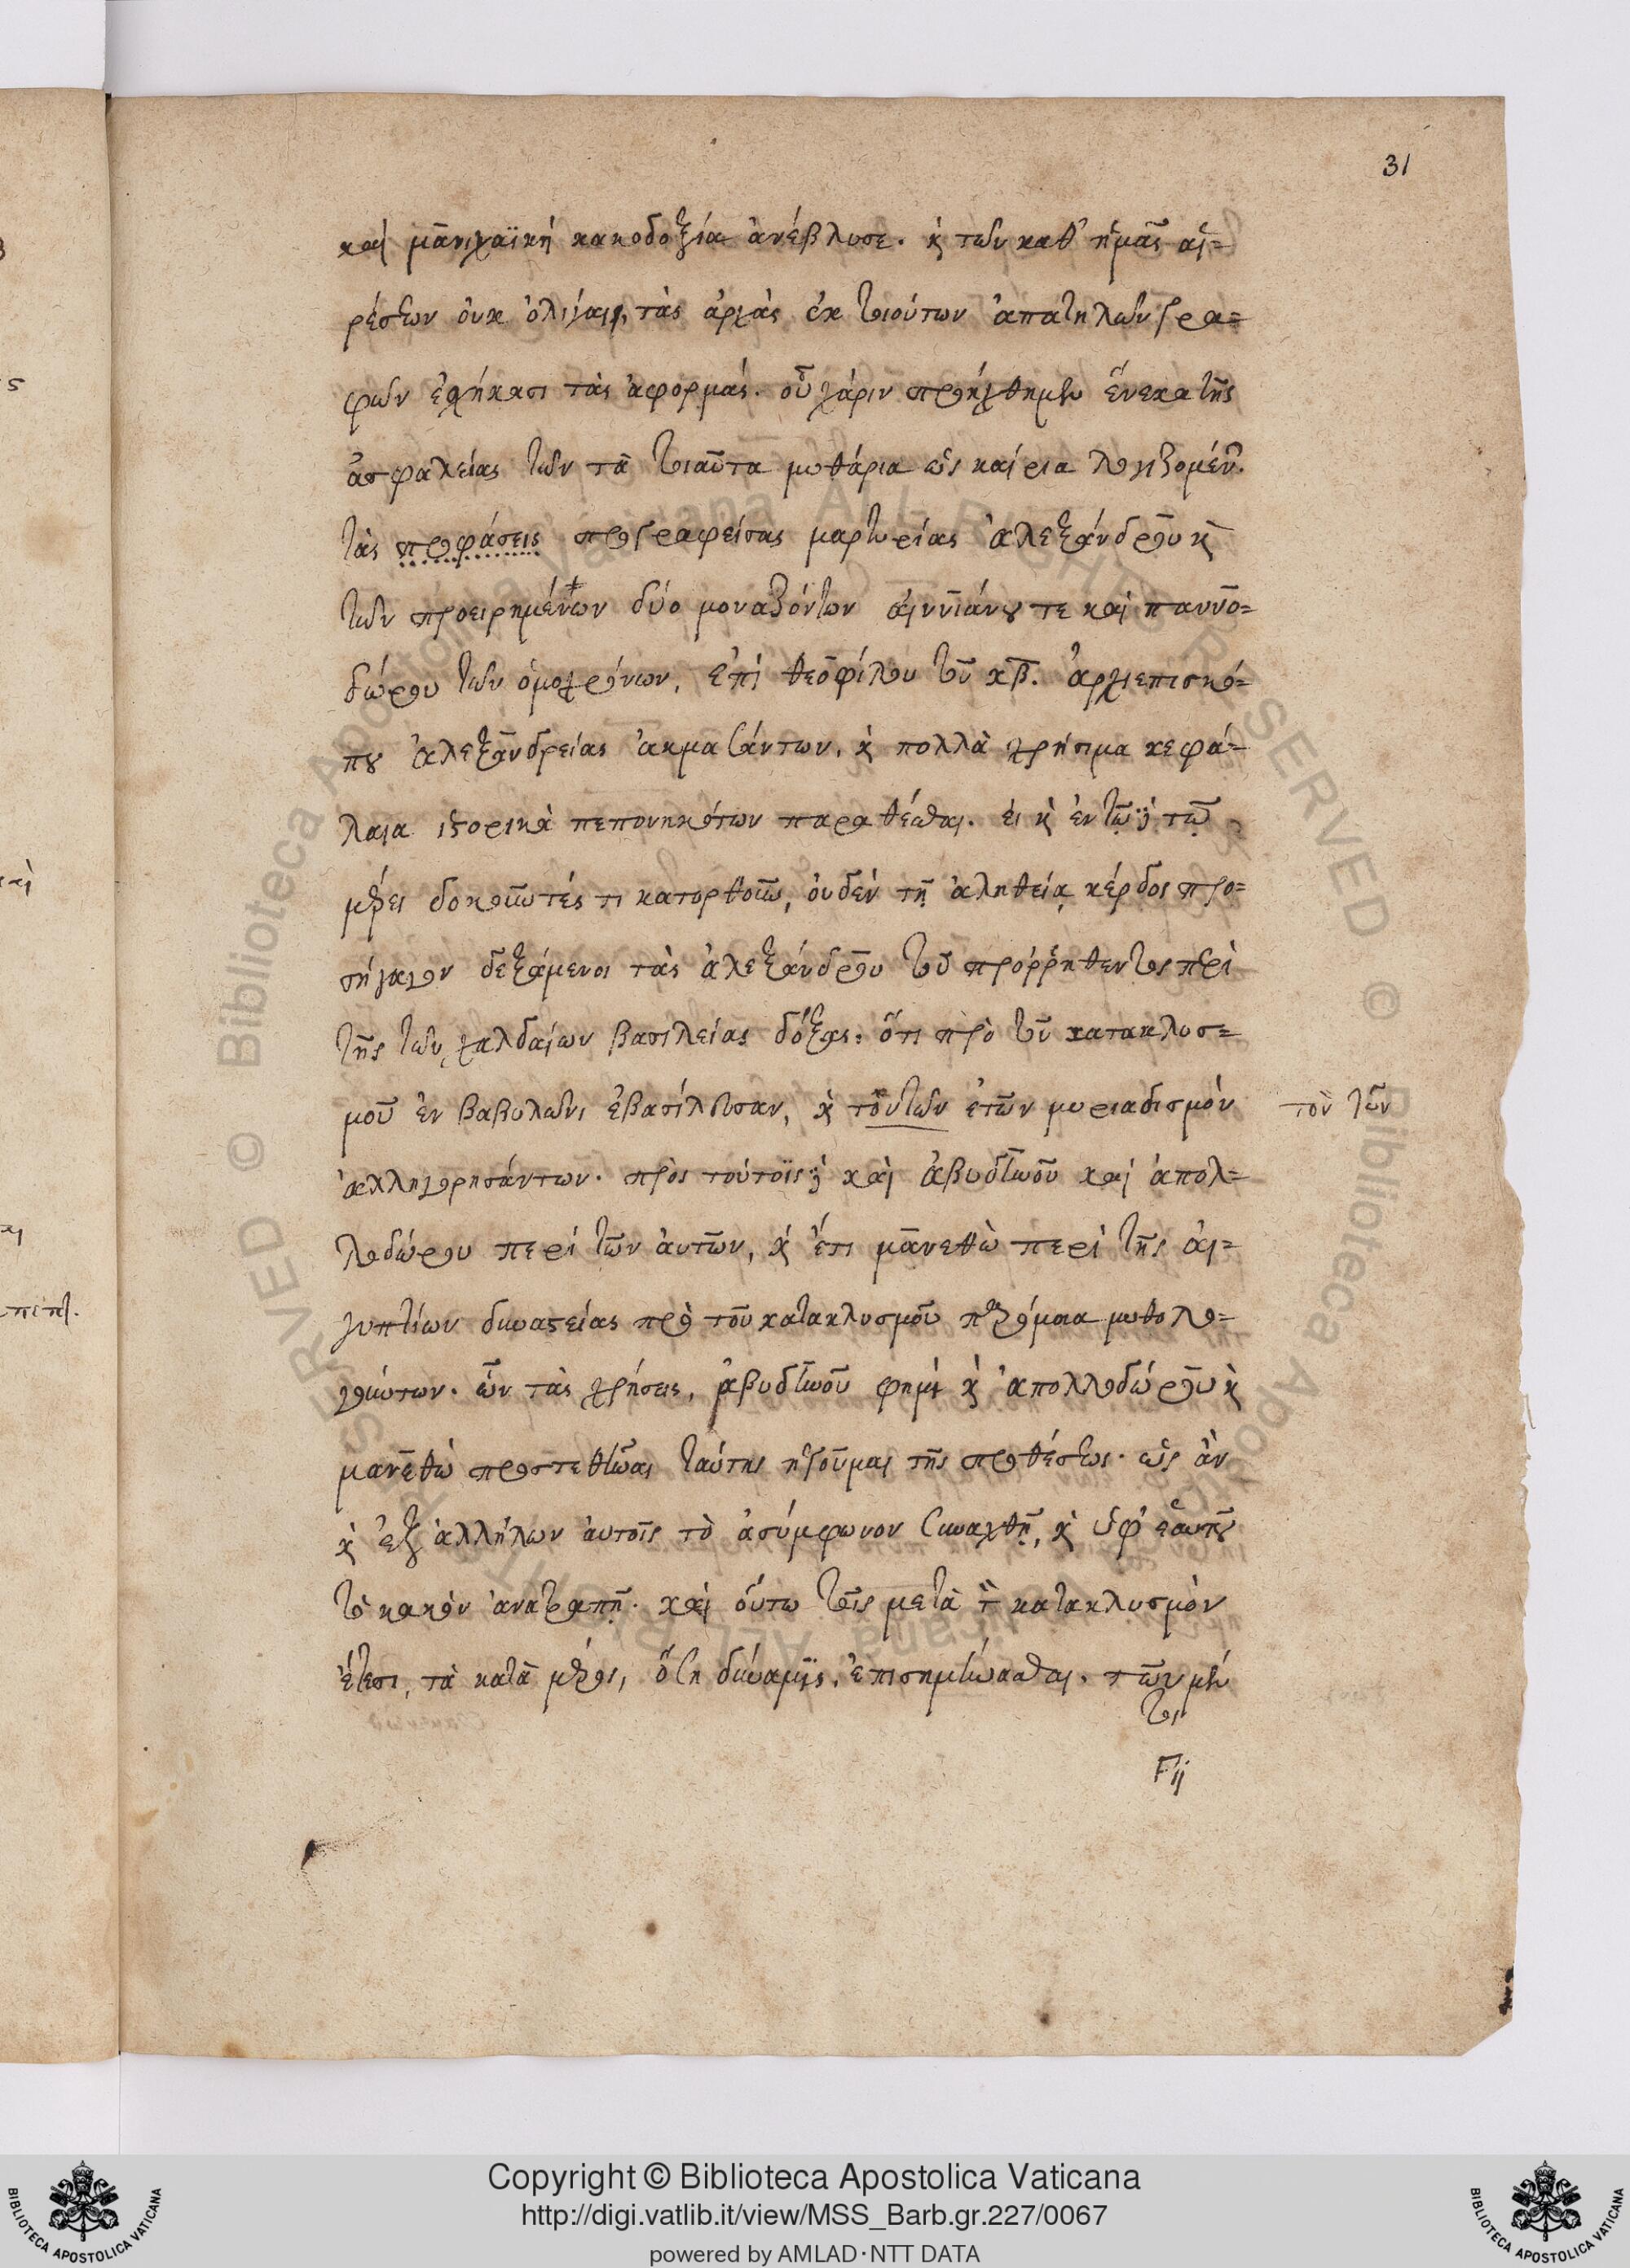 31
καὶ μανιχαϊκὴ κακοδοξία ἀνέβλυσε. κ̀ τῶν καθ' ἡμᾶς αἱ=
ρέσεων ὀυκ ὀλίγαι, τὰς ἀρχὰς ἐκ τοιούτων ἀπατηλῶν γρα=
φῶν ἐσχήκασι τὰς ἀφορμάς. οὗ χάριν προήχθημεν ἕνεκα τῆς
ἀσφαλείας τῶν τὰ τοιαῦτα μυθάρια ὡς καίρια λογιζομένων.
τὰς προφάσεις προγραφείσας μαρτυρίας ἀλεξάνδρου κ̀
τῶν προειρημένων δύο μοναζόντων ἀιννιάνου τε καὶ παννο=
δώρου τῶν ὁμοχρόνων, ἐπὶ θεοφίλου τοῦ κβ. ἀρχιεπισκό=
που ἀλεξανδρείας ἀκμασάντων, κ̀ πολλὰ χρήσιμα κεφά=
λαια ἱστορικὰ πεπονηκότων παραθέσθαι. εἰ κ̀ ἐν τῷδε τῷ
μέρει δοκοῦντές τι κατορθοῦν, ὀυδὲν τῇ ἀληθείᾳ κέρδος προ=
σήγαγον δεξάμενοι τὰς ἀλεξάνδρου τοῦ προῤῥηθέντος περὶ
τῆς τῶν χαλδαίων βασιλείας δόξας. ὅτι πρὸ τοῦ κατακλυσ=
μοῦ ἐν βαβυλῶνι ἐβασίλευσαν, κ̀ τὸν τῶν ἐτῶν μυριαδισμὸν
τὸν τῶν
ἀλληγορησάντων. πρὸς τούτοις δὲ καὶ ἀβυδηνοῦ καὶ ἀπολ=
λοδώρου περὶ τῶν ἀυτῶν, κ̀ ἔτι μανεθὼ περὶ τῆς ἀι=
γυπτίων δυναστείας πρὸ τοῦ κατακλυσμοῦ μυθολο=
γούντων. ὧν τὰς χρήσεις, ἀβυδηνοῦ φημὶ κ̀ ἀπολλοδώρου κ̀
μανεθὼ προστεθῆναι ταύτης ἡγοῦμαι τῆς προθέσεως. ὡς ἂν
κ̀ ἐξ ἀλλήλων ἀυτοῖς τὸ ἀσύμφωνον συναχθῇ, κ̀ ὑφ' ἑαυτοῦ
τὸ κακὸν ἀνατραπῇ. καὶ ὅυτω τοῖς μετὰ τὸν κατακλυσμὸν
ἔτεσι, τὰ κατὰ μέρος, ὅση δύναμις, ἐπισημήνασθαι. τῶν μὲν
τοι
Fij
Copyright © Biblioteca Apostolica Vaticana
http://digi.vatlib.it/view/MSS_Barb.gr.227/0067
powered by AMLAD·NTT DATA